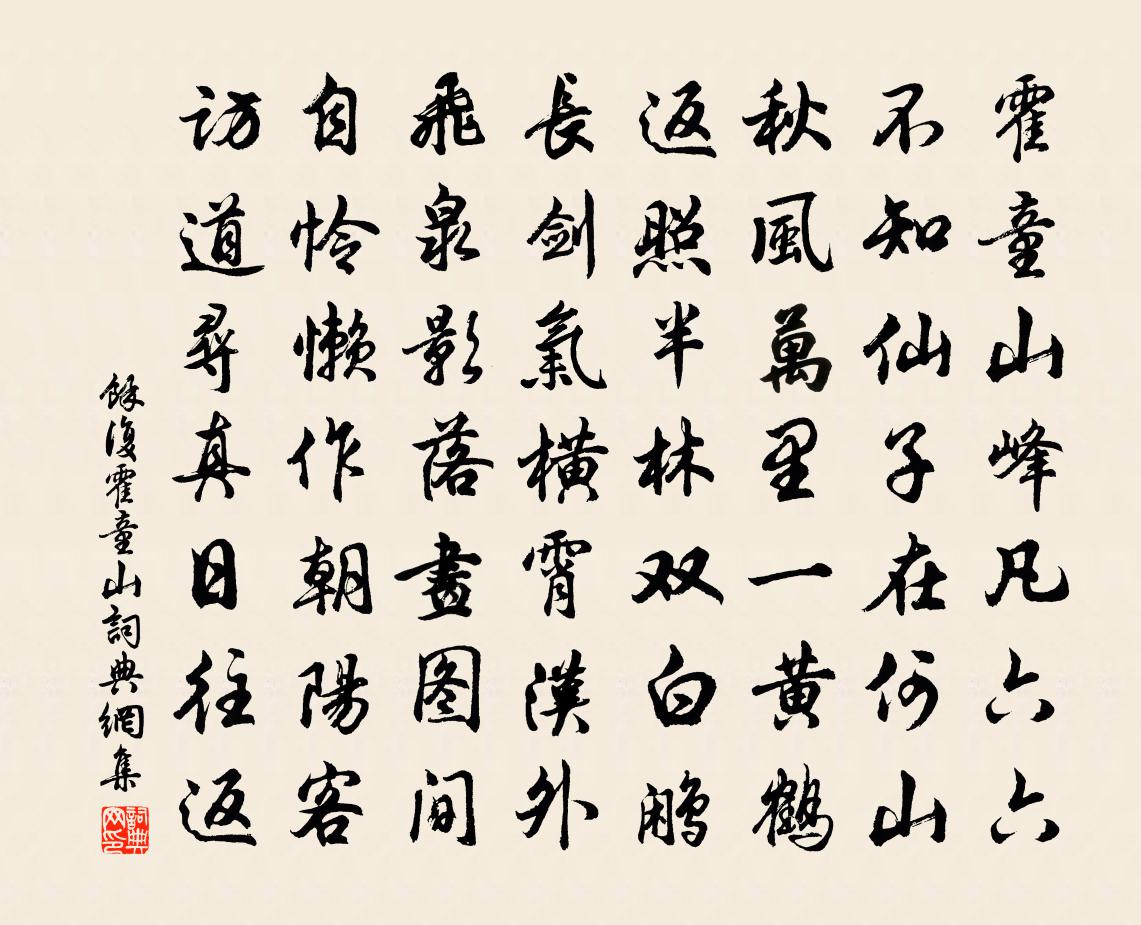 霍童山峰凡六六
不知仙子在何山
秋風萬里一黃鶴
返照半林双白鷴
長劍氣橫霄漢外
飛泉影落畫图间
自怜懒作朝陽客
訪道尋真日往返
餘復霍童山詞典網集
詞典网印